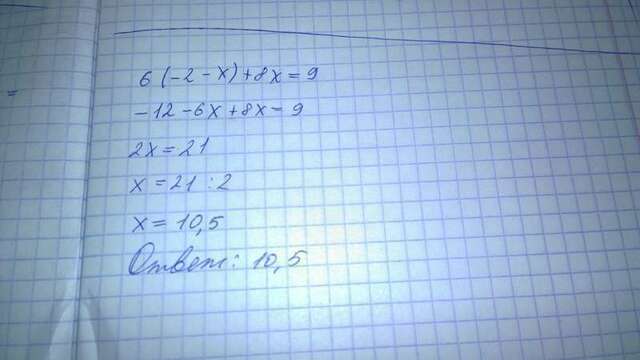 6(-2-x)+8x=9
-12-6x+8x=9
2x=21
x=21:2
x=10,5
Ответ: 10,5